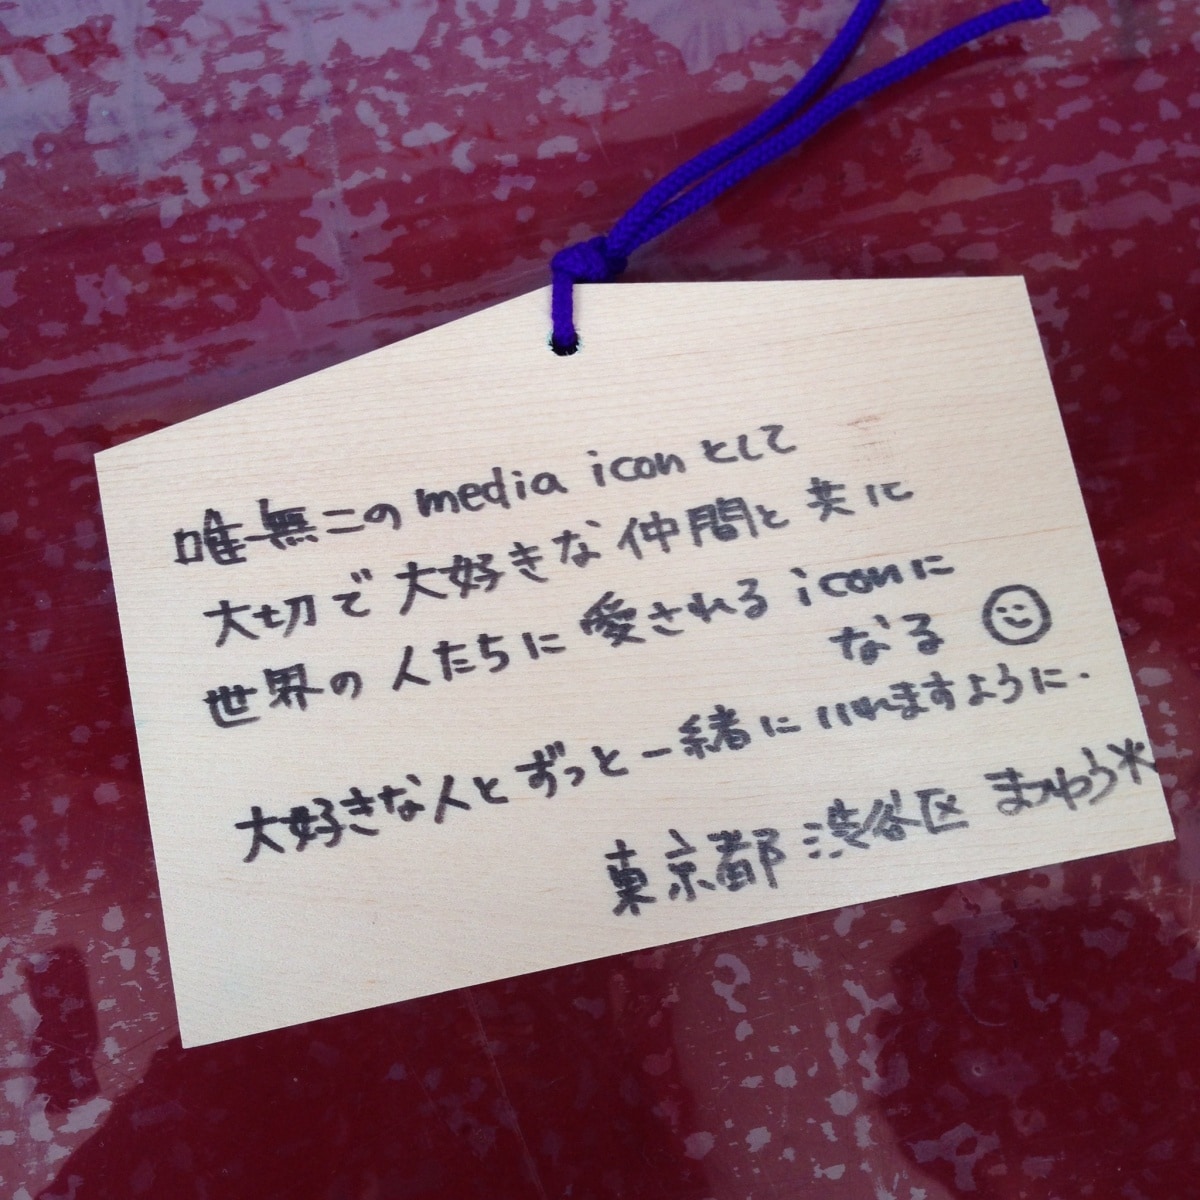 唯一無二のmedia iconとして
大切で大好きな仲間と共に
世界の人たちに愛されるiconに
なる
大好きな人とずっと一緒にいれますように.
東京都 渋谷区 まつゆう*